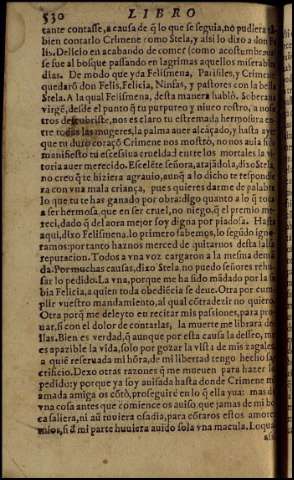 530 LIBRO
tante contasse, a causa de q̃ lo que se seguia, no pudiera tã
bien contarlo Crimene como Stela, y assi lo dixo a don Fe
lis. Del cielo en acabando de comer (como acostumbr
se fue al bosque passando en lagrimas aquellos miserables
dias. De modo que yda Felismena, Parisiles, y Crimene
quedarõ don Felis, Felicia, Ninfas, y pastores con la bella
Stela. A la qual Felismena, desta manera hablò. Soberana
virgẽ, desde el punto q̃ tu purpureo y niueo rostro, a noso
tros descubriste, nos es claro tu estremada hermosura en
tre todas las mugeres, la palma auer alcãçado, y hasta ayer
que tu duro coraçõ Crimene nos mostro, no nos auia sido
manifiesto tu escessiua crueldad entre los mortales la vi
toria auer merecido. Escelẽte señora, atajãdola, dixo Stela,
no creo q̃ te hiziera agrauio, aunq̃ a lo dicho te respondie
ra con vna mala criança, pues quieres darme de palabra
lo que tu te has ganado por obra: digo quanto a lo q̃ toca
a ser hermosa, que en ser cruel, no niego, q̃ el premio me-
reci, dado q̃ del aora mejor soy digna por piadosa. Hasta
aqui, dixo Felismena. lo primero sabemos, lo segũdo igno
ramos: por tanto haznos merced de quitarnos desta falsa
reputacion. Todos a vna voz cargaron a la mesma demã
da. Por muchas causas, dixo Stela, no puedo señores rehu
sar lo pedido. La vna, porque me ha sido mãdado por la sa
bia Felicia, a quien toda obediẽcia se deue. Otra por cum-
plir vuestro mandamiento, al qual cõtradezir no quiero.
Otra porq̃ me deleyto en recitar mis passiones, para pro
uar, si con el dolor de contarlas, la muerte me librara de
llas. Bien es verdad, q̃ aunque por esta causa la desseo, me
es apazible la vida, solo por gozar la vista de mis zagales
a quiẽ reseruada mi hõra, de mi libertad tengo hecho sa
crificio. Dexo otras razones q̃ me mueuen para hazer lo
pedido: y porque ya soy auisada hasta donde Crimene mi
amada amiga os cõtò, proseguirè en lo q̃ ella yua: mas de
vna cosa antes que comience os auiso, que jamas de mi bo
ca saliera, ni aũ tuuiera osadia, para cõtaros estos amores
mios, si d̃ mi parte huuiera auido sola vna macula. Lo qual